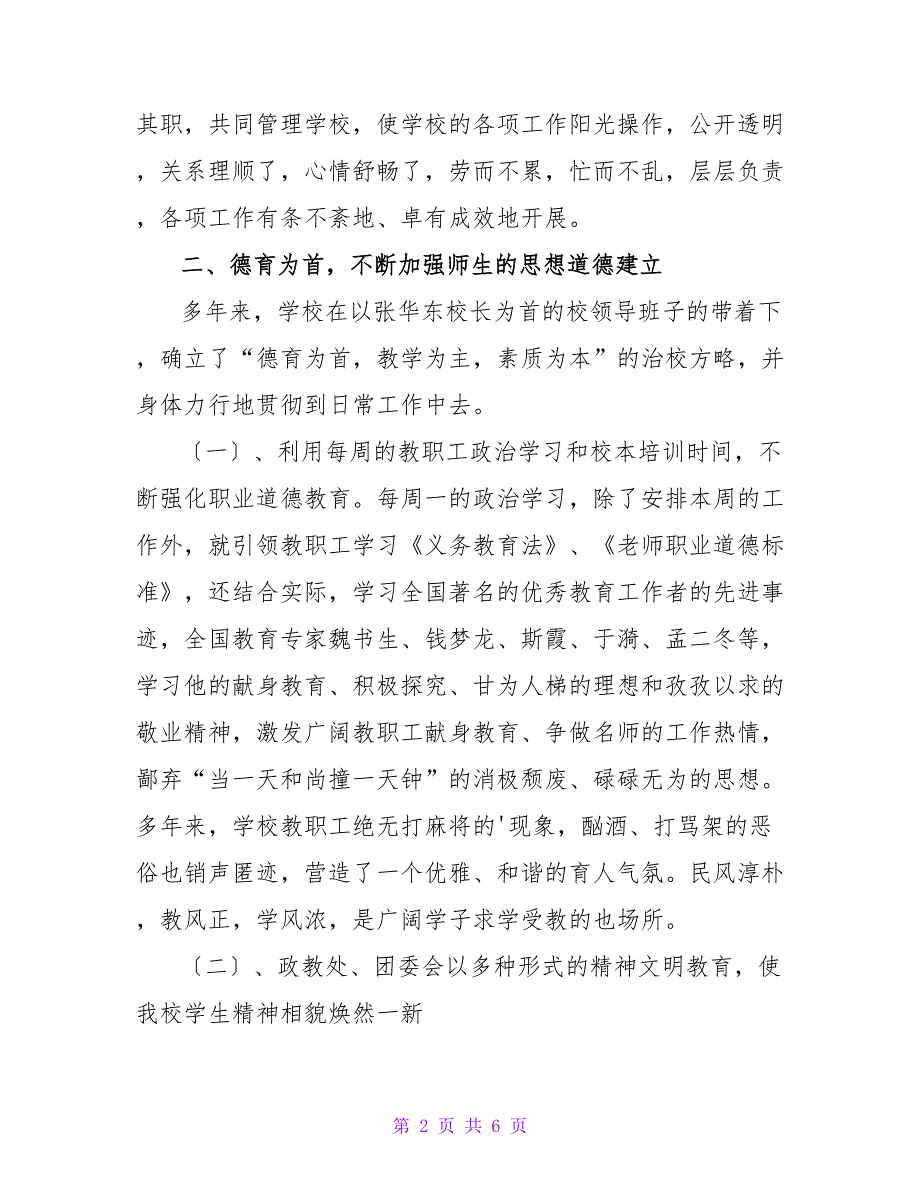 其职，共同管理学校，使学校的各项工作阳光操作，公开透明
，关系理顺了，心情舒畅了，劳而不累，忙而不乱，层层负责
，各项工作有条不紊地、卓有成效地开展。
二、德育为首，不断加强师生的思想道德建立
多年来，学校在以张华东校长为首的校领导班子的带着下
，确立了“德育为首，教学为主，素质为本”的治校方略，并
身体力行地贯彻到日常工作中去。
〔一〕、利用每周的教职工政治学习和校本培训时间，不
断强化职业道德教育。每周一的政治学习，除了安排本周的工
作外，就引领教职工学习《义务教育法》、《老师职业道德标
准》，还结合实际，学习全国著名的优秀教育工作者的先进事
迹，全国教育专家魏书生、钱梦龙、斯霞、于漪、孟二冬等，
学习他的献身教育、积极探究、甘为人梯的理想和孜孜以求的
敬业精神，激发广阔教职工献身教育、争做名师的工作热情，
鄙弃“当一天和尚撞一天钟”的消极颓废、碌碌无为的思想。
多年来，学校教职工绝无打麻将的'现象，酗酒、打骂架的恶
俗也销声匿迹，营造了一个优雅、和谐的育人气氛。民风淳朴
，教风正，学风浓，是广阔学子求学受教的也场所。
〔二〕、政教处、团委会以多种形式的精神文明教育，使
我校学生精神相貌焕然一新
第 2 页 共 6 页